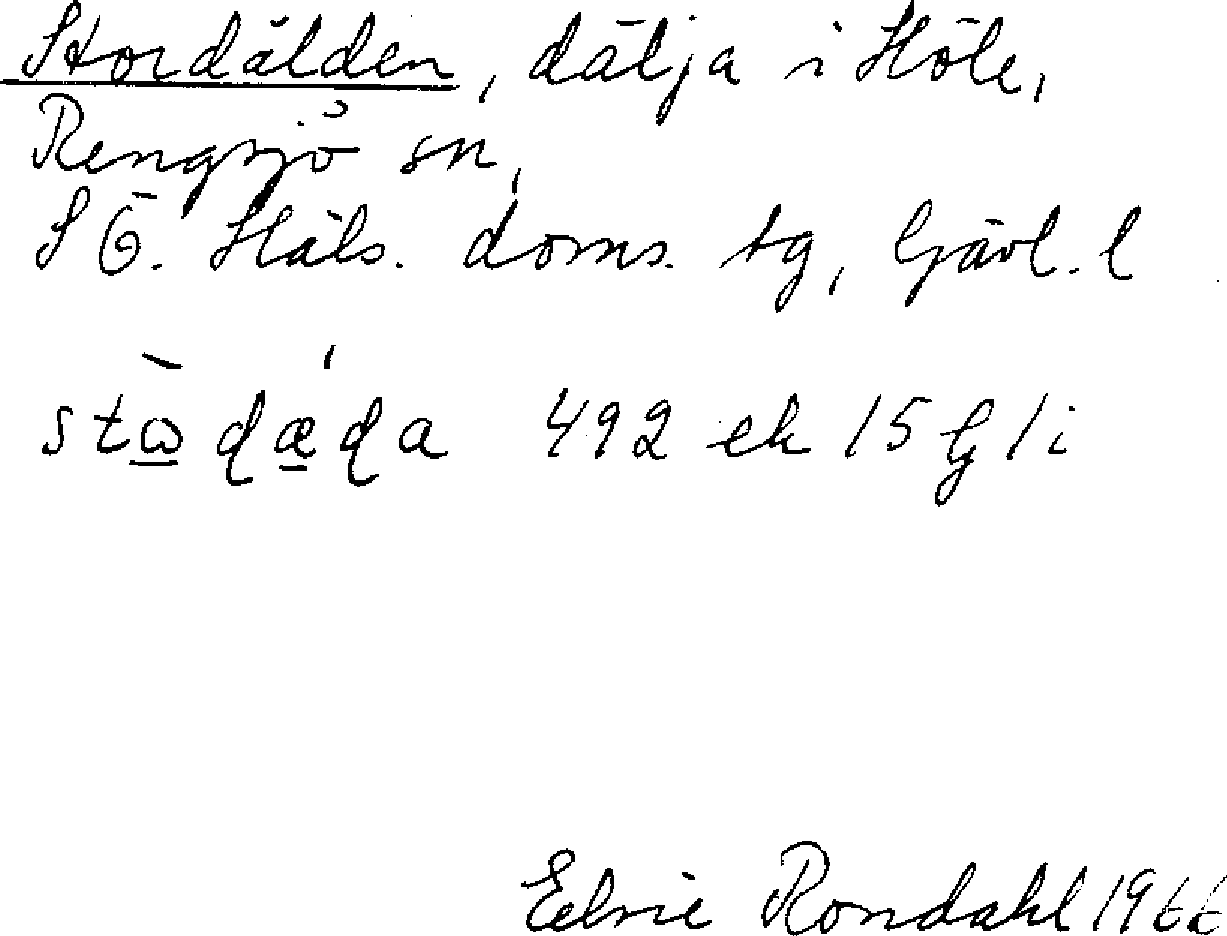 Stordälden, dälja i Höle,
Rengsjö sn,
S Ö. Häls. doms. tg, Gävl. l
492 ek 15 G 1 i
Elsie Rondahl 1966